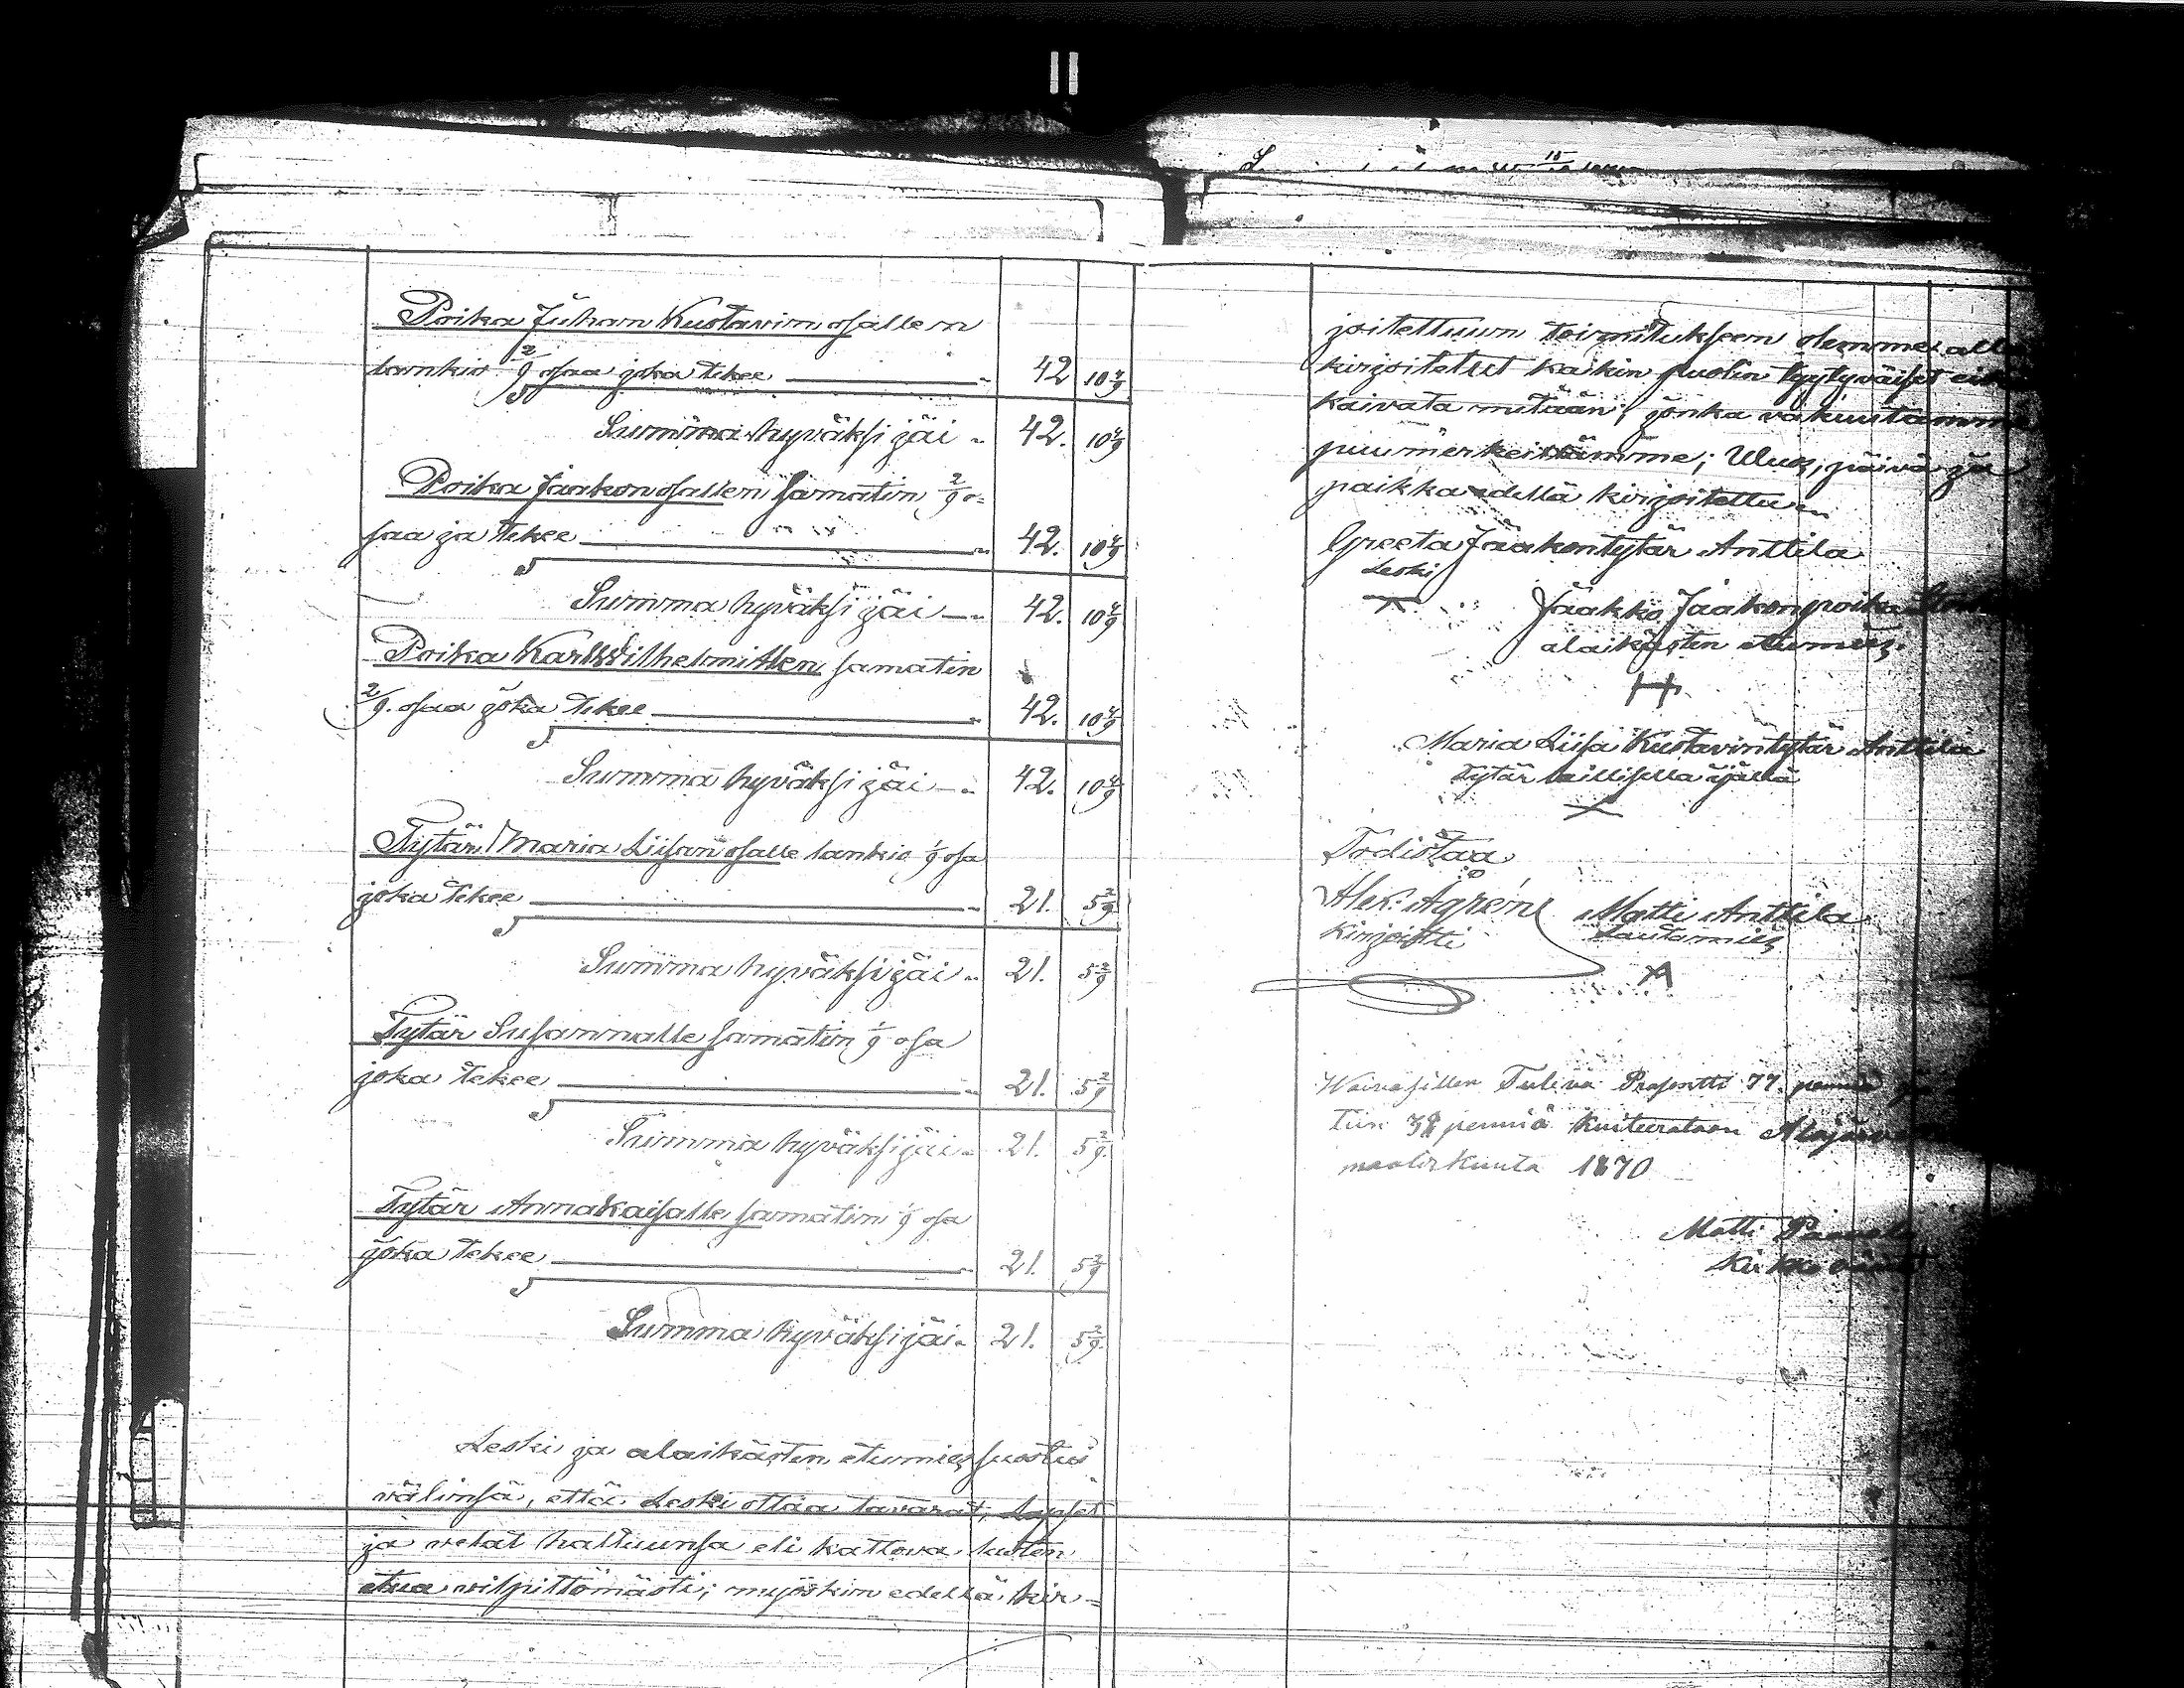 Poika Juhan Kustavin osallen
lankio 2/9 osaa joka tekee 42 10 4/9
Summa hyväksi jäi 42. 10 4/9
Poika Jaakon osallen samatin 2/9 o-
saa ja tekee 42. 10 4/9
Summa hyväksi jäi 42. 10 4/9
Poika Karl Wilhelmillen samatin
2/9. osaa joka tekee 42. 10 4/9
Summa hyväksi jäi 42. 10 4/9
Tytär Maria Liisan osalle lankio 1/9 osa
joka tekee 21. 5 2/9
Summa hyväksi jäi 21. 5 2/9
Tytär Susannalle samatin 1/9 osa
joka tekee 21. 5 2/9
Summa hyväksi jäi 21. 5 2/9
Tytär Annakaisalle samatin 1/9 osa
joka tekee 21. 5 2/9
Summa hyväksi jäi 21. 5 2/9
Leski ja alaikästen etumies suostui
välinsä, että Leski ottaa tavarat, Lapset
ja velat haltuunsa eli kattova lasten
etua vilpittömästi; myöskin edellä kir-
joitettuun toimitukseen olemme alle
kirjoitetut kaikin puolin tyytyväiset
kaivata mitään; jonka vakuutamme
puumerkeillämme; Wuos, päivä ja
paikka edellä kirjoitettu
Greeta Jaakontytär Anttila
Leski
Jaakko Jaakonpoika
alaikästen etumies.
Maria Liisa Kustavintytär Anttila
tytär laillisella ijällä
Todistaa
Alex. Ågrén Matti Anttila
Kirjoitti Lautamies
Waivasillen Tuleva Prosentti 77. penniä
38 penniä kuiteerataan Alajärvellä
maaliskuuta 1870
Matti